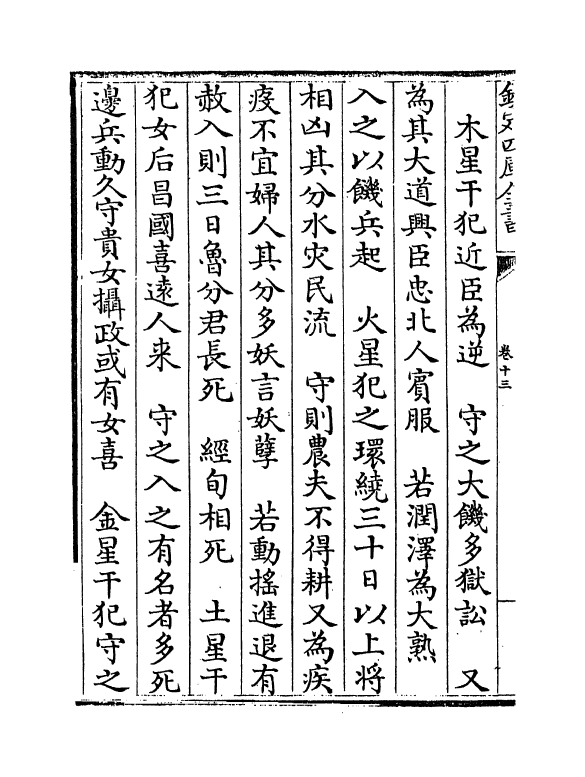 欽定四庫全書
卷十三
木星干犯近臣為逆　守之大饑多獄訟　又
為其大道興臣忠北人賓服　若潤澤為大熟
入之以饑兵起　火星犯之環繞三十日以上將
相凶其分水災民流　守則農夫不得耕又為疾
疫不宜婦人其分多妖言妖孽　若動搖進退有
赦入則三日魯分君長死　經旬相死　土星干
犯女后昌國喜遠人來　守之入之有名者多死
邊兵動久守貴女攝政或有女喜　金星干犯守之